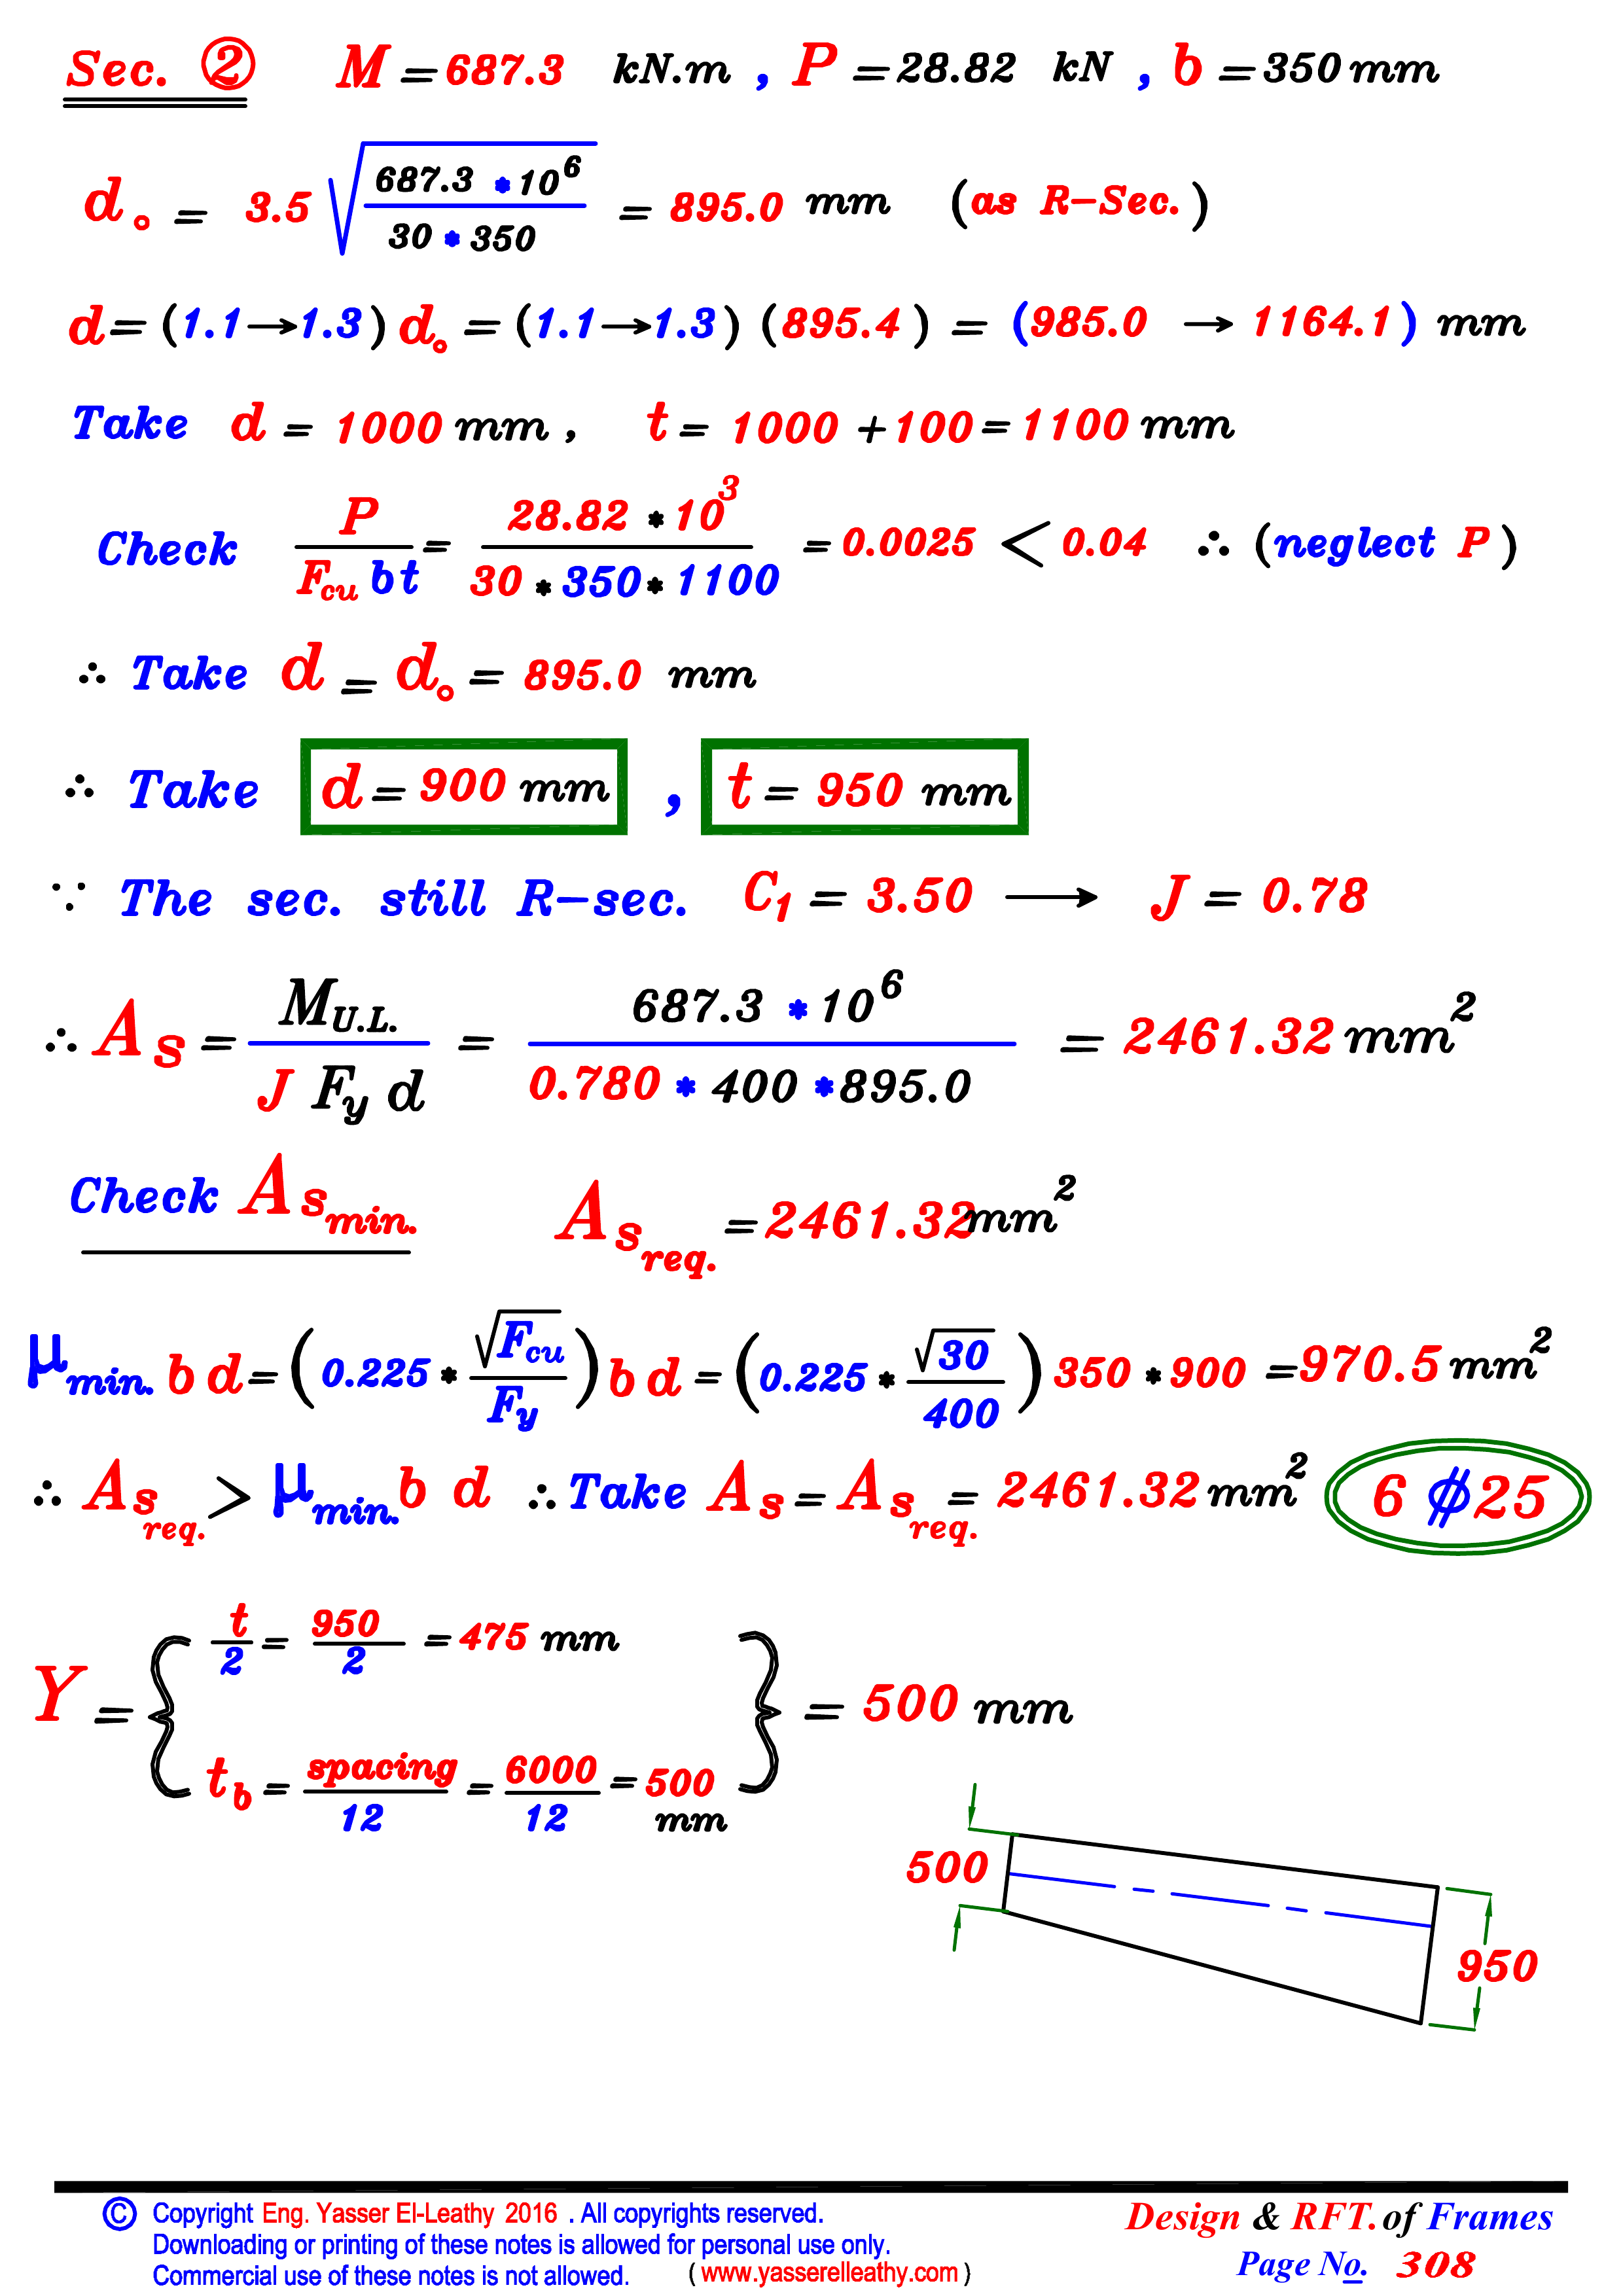 Sec. ② M = 687.3 kN.m , P = 28.82 kN , b = 350 mm
d₀ = 3.5 √(687.3 * 10⁶ / 30 * 350) = 895.0 mm (as R-Sec.)
d = (1.1 → 1.3) d₀ = (1.1 → 1.3) (895.4) = (985.0 → 1164.1) mm
Take d = 1000 mm , t = 1000 + 100 = 1100 mm
Check P / F_cu b t = 28.82 * 10³ / 30 * 350 * 1100 = 0.0025 < 0.04 ∴ (neglect P)
∴ Take d = d₀ = 895.0 mm
∴ Take d = 900 mm , t = 950 mm
∵ The sec. still R-sec. C₁ = 3.50 → J = 0.78
∴ As = M_U.L. / J F_y d = 687.3 * 10⁶ / 0.780 * 400 * 895.0 = 2461.32 mm²
Check As_min. As_req. = 2461.32 mm²
μ_min. b d = (0.225 * √F_cu / F_y) b d = (0.225 * √30 / 400) 350 * 900 = 970.5 mm²
∴ As_req. > μ_min. b d ∴ Take As = As_req. = 2461.32 mm² 6 ⌀ 25
t / 2 = 950 / 2 = 475 mm
Y = { } = 500 mm
t_b = spacing / 12 = 6000 / 12 = 500 mm
500
950
© Copyright Eng. Yasser El-Leathy 2016 . All copyrights reserved.
Downloading or printing of these notes is allowed for personal use only.
Commercial use of these notes is not allowed. ( www.yasserelleathy.com )
Design & RFT. of Frames
Page No. 308